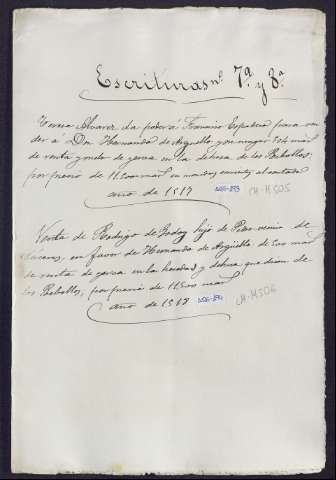 Escrituras nº 7ª y 8ª
Teresa Alvarez da poder á Francisco Espadero para ven
der á Don Hernando de y su muger 524 mrs
de renta y vuelo de yerva en la dehesa de los Rebollos,
por precio de 11.500 mrs en contado
año de 1517 CH-H505
Venta de Rodrigo de Godoy hijo de Pero vecino de
Cáceres, en favor de Hernando de de 500 mrs
de renta de yerva en la heredad y dehesa que dicen de
los Rebollos, por precio de 11500 mrs
año de 1517 CH-H506